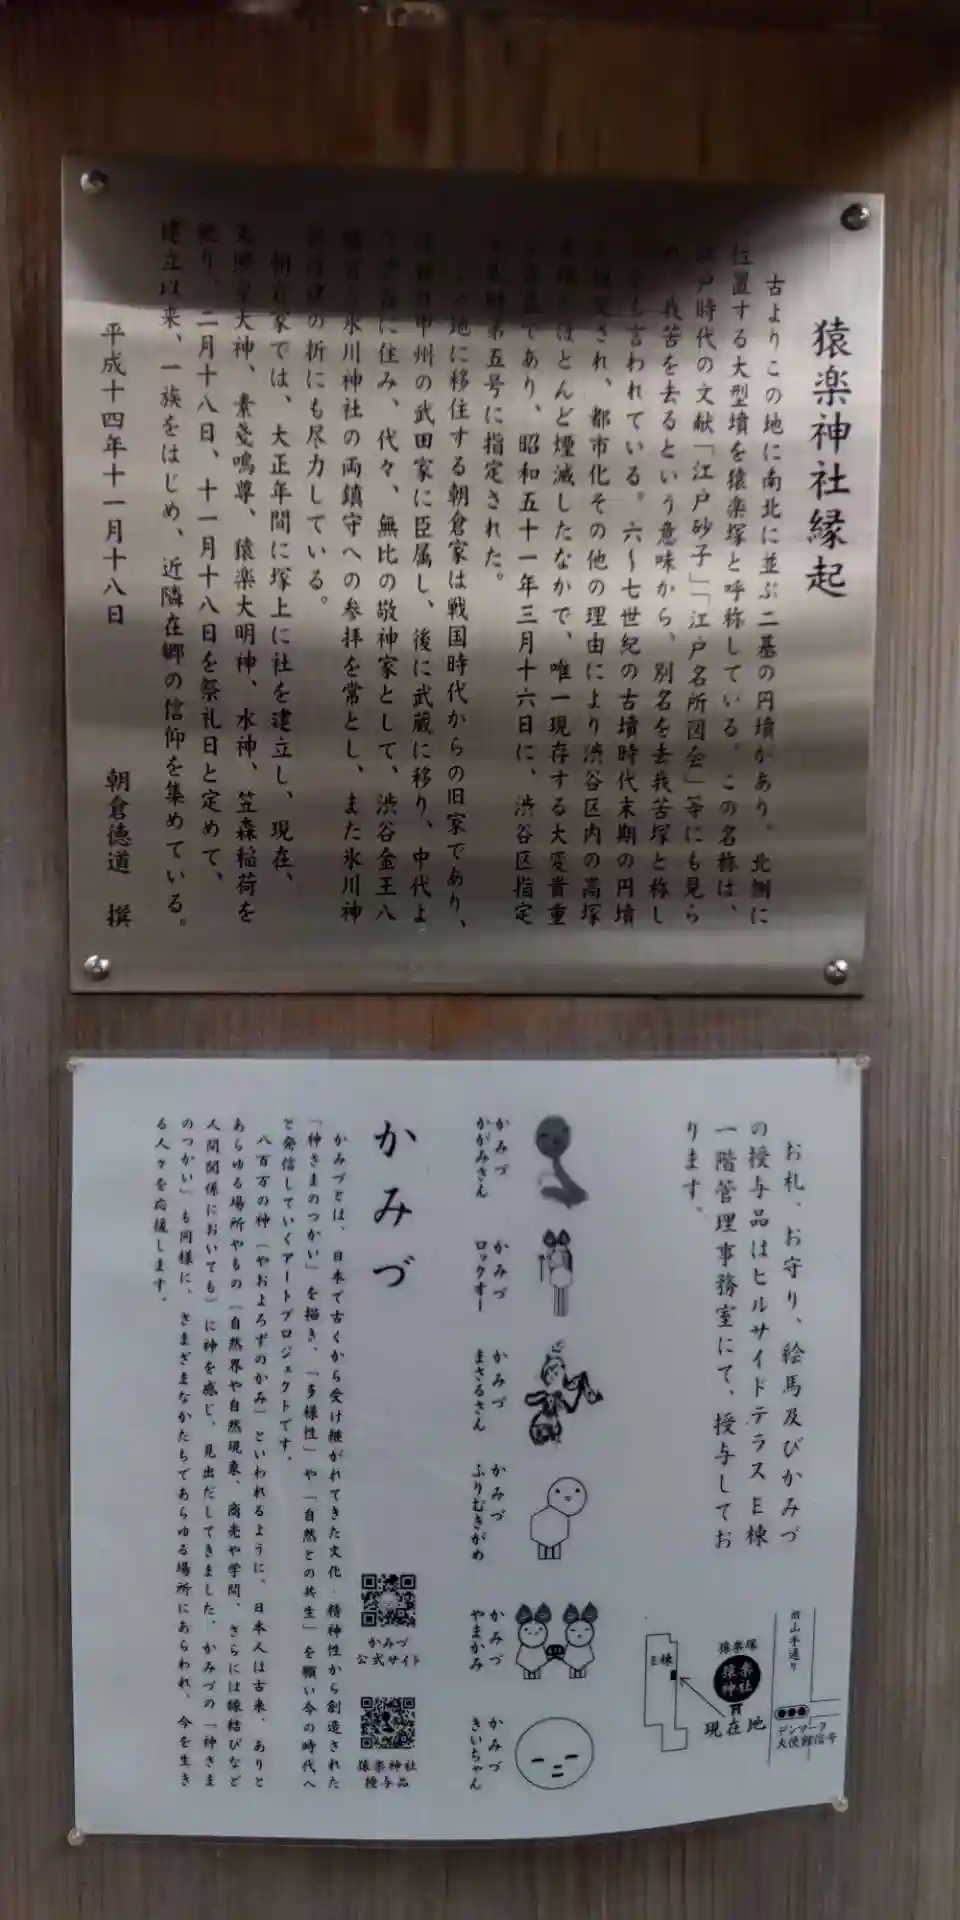 猿楽神社縁起
古よりこの地に南北に並ぶ二基の円墳があり、北側に
位置する大型墳を猿楽塚と呼称している。この名称は、
江戸時代の文献「江戸砂子」「江戸名所図会」等にも見ら
我苦を去るという意味から、別名を去我苦塚と称し
も言われている。六〜七世紀の古墳時代末期の円墳
され、都市化その他の理由により渋谷区内の高塚
ほとんど煙滅したなかで、唯一現存する大変貴重
であり、昭和五十一年三月十六日に、渋谷区指定
第五号に指定された。
地に移住する朝倉家は戦国時代からの旧家であり、
甲州の武田家に臣属し、後に武蔵に移り、中代よ
に住み、代々、無比の敬神家として、渋谷金王八
氷川神社の両鎮守への参拝を常とし、また氷川神
の折にも尽力している。
朝倉家では、大正年間に塚上に社を建立し、現在、
天照皇大神、素戔嗚尊、猿楽大明神、水神、笠森稲荷を
祀り、二月十八日、十一月十八日を祭礼日と定めて、
建立以来、一族をはじめ、近隣在郷の信仰を集めている。
平成十四年十一月十八日 朝倉徳道 撰
お札、お守り、絵馬及びかみづ
の授与品はヒルサイドテラスE棟
一階管理事務室にて、授与してお
ります。
旧山手通り
デンマーク
大使館信号
猿楽塚
猿楽
神社
現在地
E棟
かみづ
かがみさん
かみづ
ロックオー
かみづ
まさるさん
かみづ
ふりむきがめ
かみづ
やまかみ
かみづ
きいちゃん
かみづ
かみづ
公式サイト
猿楽神社
授与品
かみづとは、日本で古くから受け継がれてきた文化・精神性から創造された
「神さまのつかい」を描き、「多様性」や「自然との共生」を願い今の時代へ
と発信していくアートプロジェクトです。
八百万の神（やおよろずのかみ）といわれるように、日本人は古来、ありと
あらゆる場所やもの（自然界や自然現象、商売や学問、さらには縁結びなど
人間関係においても）に神を感じ、見出だしてきました。かみづの「神さま
のつかい」も同様に、さまざまなかたちであらゆる場所にあらわれ、今を生き
る人々を応援します。